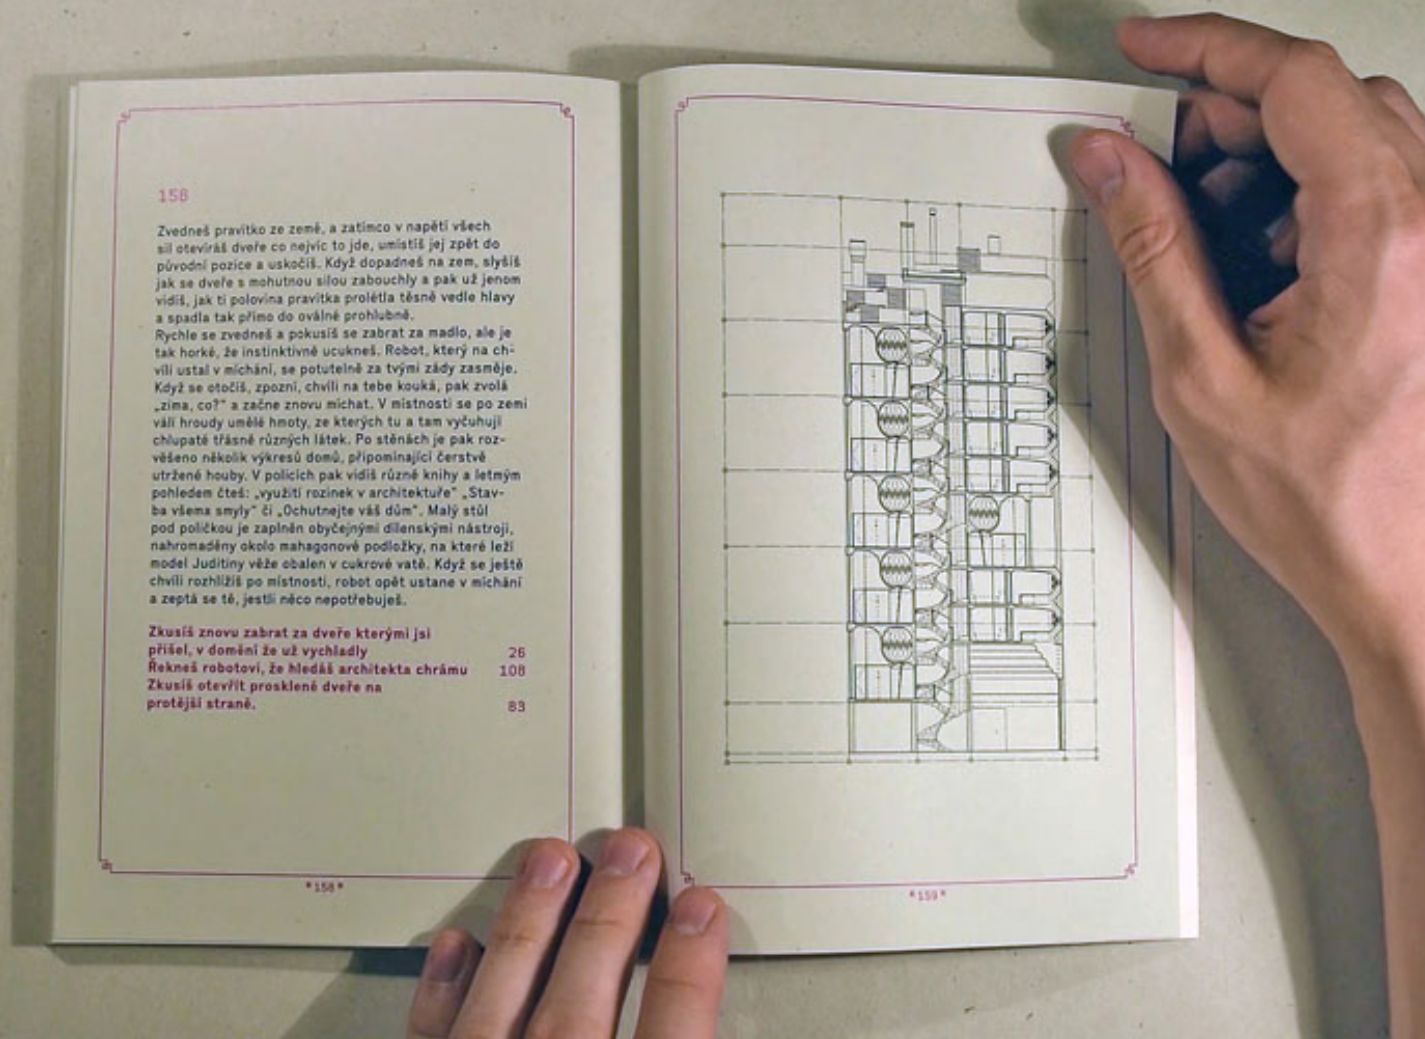 158
Zvedneš pravítko ze země, a zatímco v napětí všech
sil otevíráš dveře co nejvíc to jde, umístíš jej zpět do
původní pozice a uskočíš. Když dopadneš na zem, slyšíš
jak se dveře s mohutnou silou zabouchly a pak už jenom
vidíš, jak ti polovina pravítka prolétla těsně vedle hlavy
a spadla tak přímo do oválné prohlubně.
Rychle se zvedneš a pokusíš se zabrat za madlo, ale je
tak horké, že instinktivně ucukneš. Robot, který na ch-
víli ustal v míchání, se potutelně za tvými zády zasměje.
Když se otočíš, zpozní, chvíli na tebe kouká, pak zvolá
„zima, co?" a začne znovu míchat. V místnosti se po zemi
válí hroudy umělé hmoty, ze kterých tu a tam vyčuhují
chlupaté třásně různých látek. Po stěnách je pak roz-
věšeno několik výkresů domů, připomínající čerstvě
utržené houby. V policích pak vidíš různé knihy a letmým
pohledem čteš: „využití rozinek v architektuře" „Stav-
ba všema smyly" či „Ochutnejte váš dům". Malý stůl
pod poličkou je zaplněn obyčejnými dílenskými nástroji,
nahromaděny okolo mahagonové podložky, na které leží
model Juditiny věže obalen v cukrové vatě. Když se ještě
chvíli rozhlížíš po místnosti, robot opět ustane v míchání
a zeptá se tě, jestli něco nepotřebuješ.
Zkusíš znovu zabrat za dveře kterými jsi
přišel, v domění že už vychladly 26
Řekneš robotovi, že hledáš architekta chrámu 108
Zkusíš otevřít prosklené dveře na
protější straně. 83
*158*
*159*